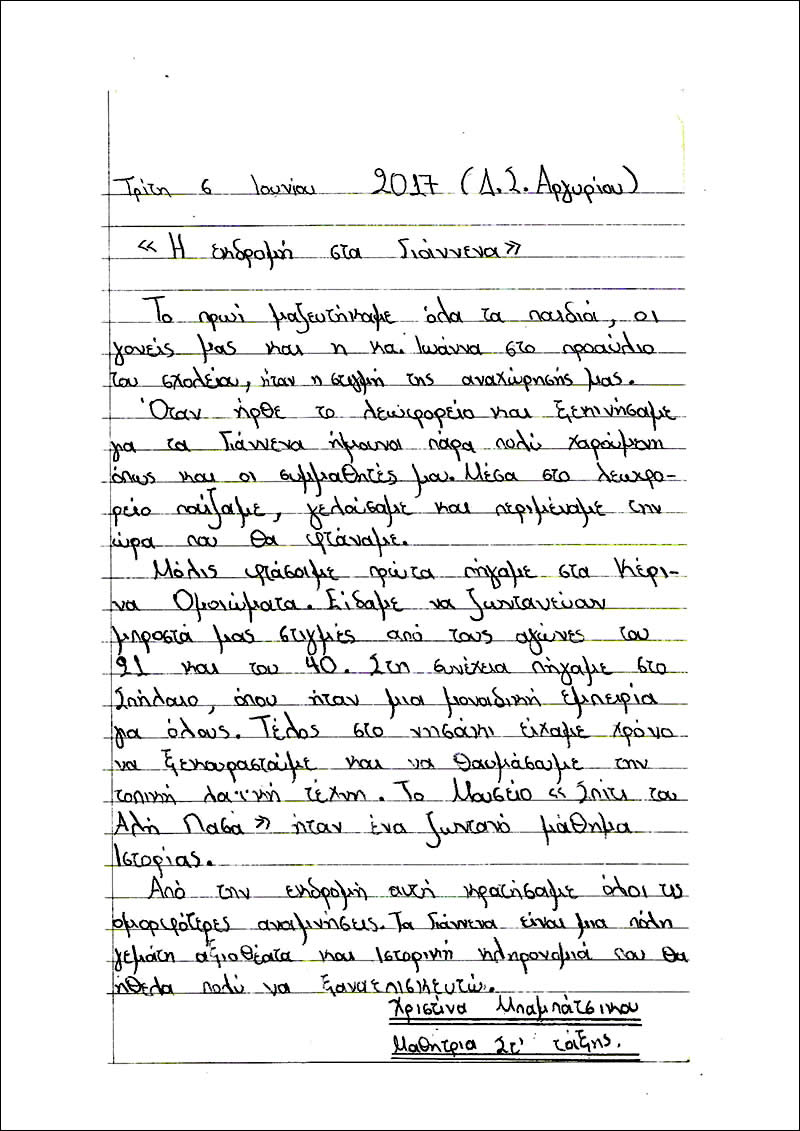 Τρίτη 6 Ιουνίου 2017 (Δ.Σ. Αργυρίου)
« Η εκδρομή στα Γιάννενα»
Το πρωί μαζευτήκαμε όλα τα παιδιά, οι
γονείς μας και η κα. Ιωάννα στο προαύλιο
του σχολείου, ήταν η στιγμή της αναχώρησής μας.
Όταν ήρθε το λεωφορείο και ξεκινήσαμε
για τα Γιάννενα ήμουνα πάρα πολύ χαρούμενη
όπως και οι συμμαθητές μου. Μέσα στο λεωφο-
ρείο παίζαμε, γελούσαμε και περιμέναμε την
ώρα που θα φτάναμε.
Μόλις φτάσαμε πρώτα πήγαμε στα Κέρι-
να Ομοιώματα. Είδαμε να ζωντανεύουν
μπροστά μας στιγμές από τους αγώνες του
21 και του 40. Στη συνέχεια πήγαμε στο
Σπήλαιο, όπου ήταν μια μοναδική εμπειρία
για όλους. Τέλος στο νησάκι είχαμε χρόνο
να ξεκουραστούμε και να θαυμάσουμε την
τοπική λαϊκή τέχνη. Το Μουσείο « Σπίτι του
Αλή Πασά » ήταν ένα ζωντανό μάθημα
Ιστορίας.
Από την εκδρομή αυτή κρατήσαμε όλοι τις
ομορφότερες αναμνήσεις. Τα Γιάννενα είναι μια πόλη
γεμάτη αξιοθέατα και Ιστορική κληρονομιά που θα
ήθελα πολύ να ξαναεπισκευτώ.
Χριστίνα Μπαμπάτσικου
Μαθήτρια Στ' τάξης.